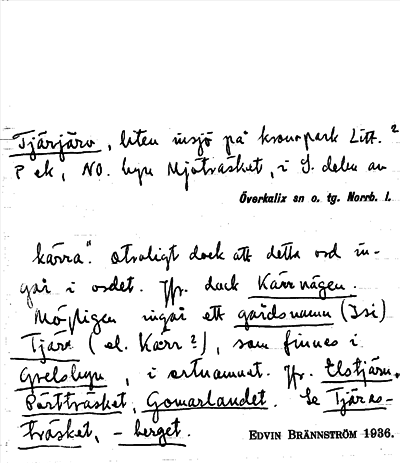 Tjärjärv, liten insjö på kronopark Litt. 2
P ek, NO. byn Mjöträsket, i S. delen av
Överkalix sn o. tg. Norrb. l.
kärra". Otroligt dock att detta ord in-
går i ordet. Jfr. dock Kärrvägen.
Möjligen ingår ett gårdsnamn (Isi)
Tjärr (el. Kärr?), som finnes i
Grelsbyn, i ortnamnet. Jfr.
Pärtträsket, Gomarlandet. Se Tjärr-
träsket, -berget.
EDVIN BRÄNNSTRÖM 1936.